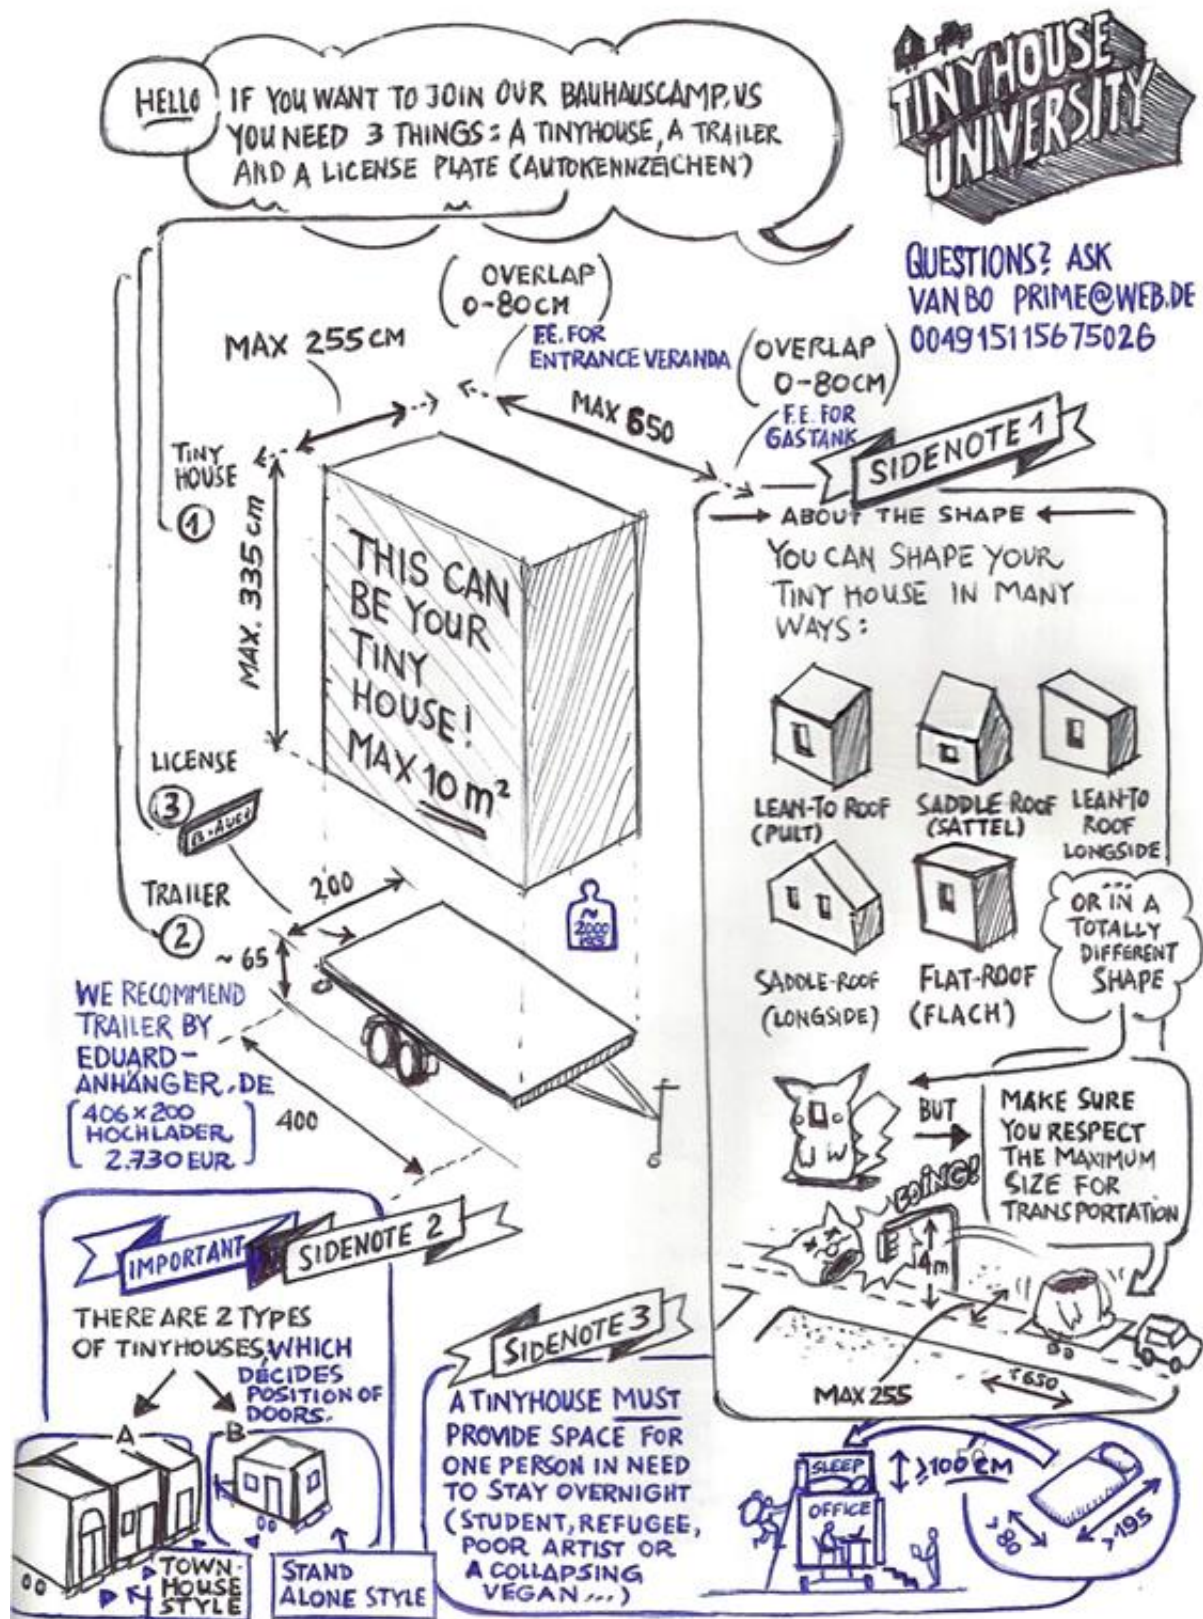 HELLO
IF YOU WANT TO JOIN OUR BAUHAUSCAMP,VS
YOU NEED 3 THINGS: A TINYHOUSE, A TRAILER
AND A LICENSE PLATE (AUTOKENNZEICHEN)
TINYHOUSE
UNIVERSITY
QUESTIONS? ASK
VAN BO PRIME@WEB.DE
004915115675026
(OVERLAP
0-80CM)
F.E. FOR
ENTRANCE VERANDA
MAX 255 CM
(OVERLAP
0-80CM)
F.E. FOR
GASTANK
MAX 650
TINY
HOUSE
1
MAX. 335 cm
THIS CAN
BE YOUR
TINY
HOUSE!
MAX 10 m²
LICENSE
3
TRAILER
2
200
~ 65
~
2000
KG
400
WE RECOMMEND
TRAILER BY
EDUARD-
ANHÄNGER.DE
[406×200
HOCHLADER
2.730 EUR]
SIDENOTE 1
ABOUT THE SHAPE
YOU CAN SHAPE YOUR
TINY HOUSE IN MANY
WAYS:
LEAN-TO ROOF
(PULT)
SADDLE ROOF
(SATTEL)
LEAN-TO
ROOF
LONGSIDE
SADDLE-ROOF
(LONGSIDE)
FLAT-ROOF
(FLACH)
...
OR IN A
TOTALLY
DIFFERENT
SHAPE
BUT
MAKE SURE
YOU RESPECT
THE MAXIMUM
SIZE FOR
TRANSPORTATION
BOING!
4m
MAX 255
650
IMPORTANT
SIDENOTE 2
THERE ARE 2 TYPES
OF TINYHOUSES, WHICH
DECIDES
POSITION OF
DOORS.
A
B
TOWN-
HOUSE
STYLE
STAND
ALONE STYLE
SIDENOTE 3
A TINYHOUSE MUST
PROVIDE SPACE FOR
ONE PERSON IN NEED
TO STAY OVERNIGHT
(STUDENT, REFUGEE,
POOR ARTIST OR
A COLLAPSING
VEGAN...)
SLEEP
OFFICE
>100 CM
>80
>195